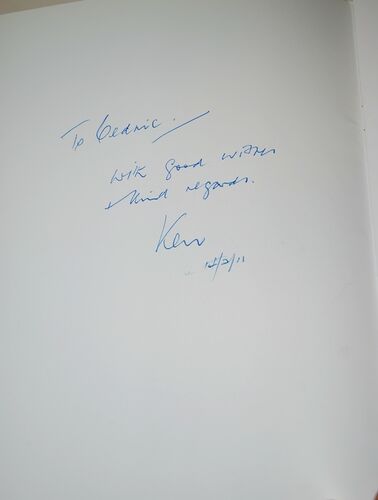 To Cedric.
With good wishes
+ kind regards.
Ken
12/2/11